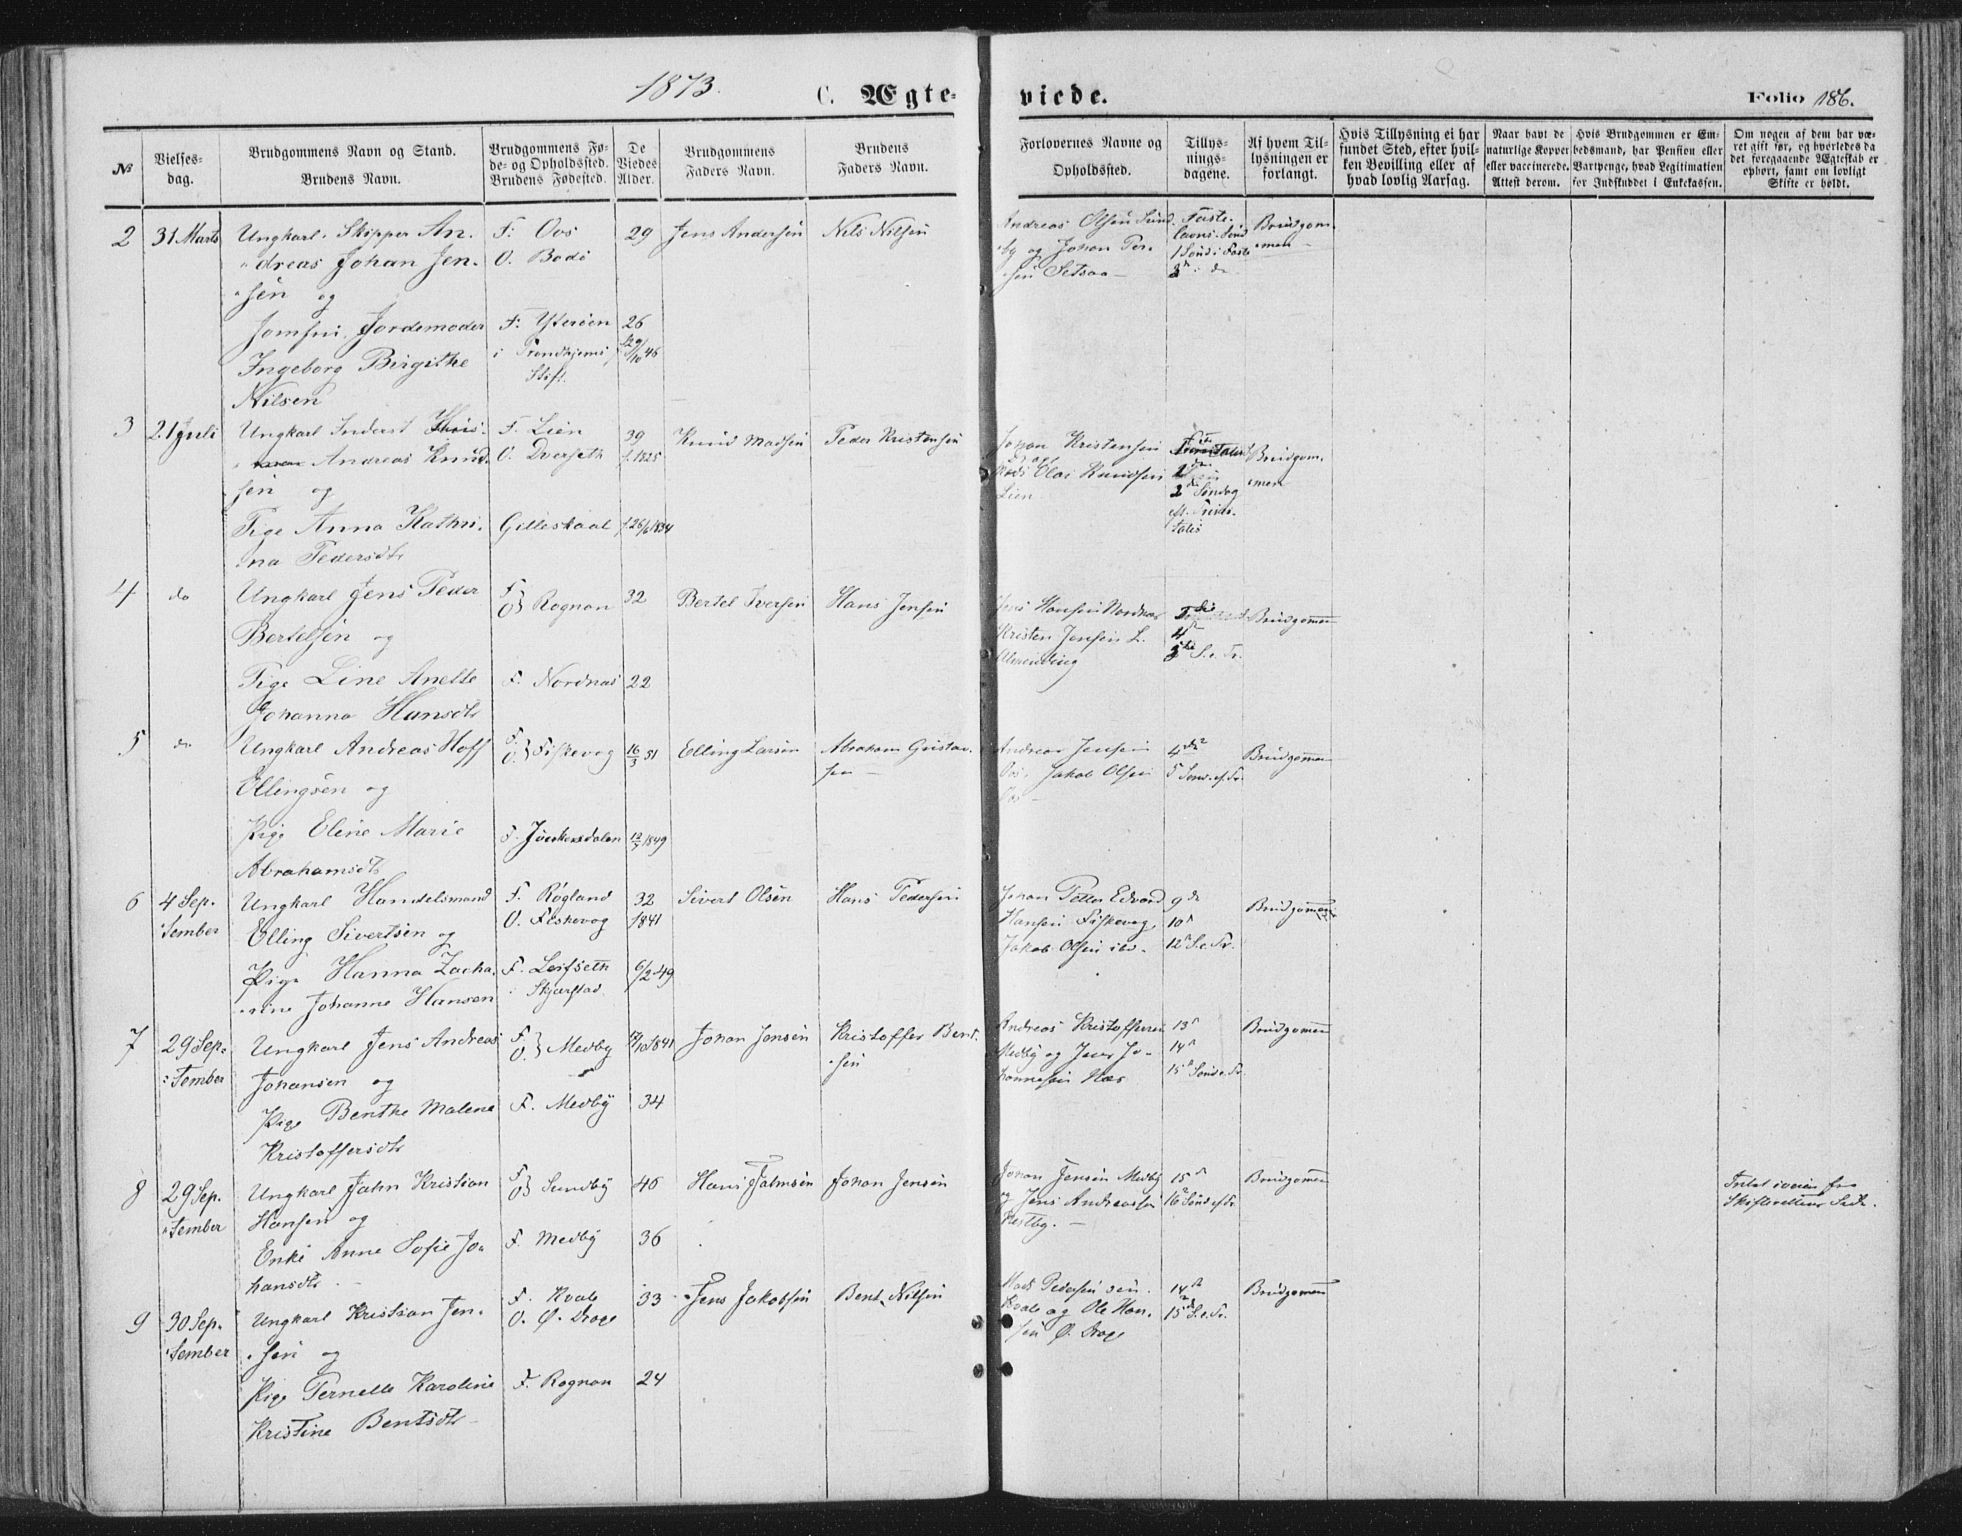 1873.
C. Ægte-
viede.
Folio 186.
№
Vielses-
dag.
Brudgommens Navn og Stand.
Brudens Navn.
Brudgommens Fø-
de- og Opholdssted.
Brudens Fødested.
De
Viedes
Alder.
Brudgommens
Faders Navn.
Brudens
Faders Navn.
Forlovernes Navne og
Opholdssted.
Tillys-
nings-
dagene.
Af hvem Til-
lysningen er
forlangt.
Hvis Tillysning ei har
fundet Sted, efter hvil-
ken Bevilling eller af
hvad lovlig Aarsag.
Naar havt de
naturlige Kopper
eller vaccinerede.
Attest derom.
Hvis Brudgommen er Em-
bedsmand, har Pension eller
Vartpenge, hvad Legitimation
for Indskuddet i Enkekassen.
Om nogen af dem har væ-
ret gift før, og hvorledes da
det foregaaende Ægteskab er
ophørt, samt om lovligt
Skifte er holdt.
2 31 Marts
Ungkarl. Skipper An-
dreas Johan Jen-
sen og
Jomfru. Jordemoder
Ingeborg Birgithe
Nilsen
F: Oos
O. Bodø
F: Yterøen
i Trondhjems
Stift.
29
26
f. 29/10 46
Jens Andersen
Nils Nilsen
Andreas Olsen Sund
by og Johan Pe-
sen Setsaa
Faste-
lavns. Sønd
1 Sønd i Faste
2 i do
Brudgom-
men
3 21 Juli
Ungkarl Inderst
Andreas Knud-
sen og
Pige Anna Kathri-
na Pedersdtr
F. Lien
O. Dverseth
Gilleskaal
39
f. 1825
f. 26/6 1834
Knud Madsen
Peder Kristensen
Johan Kristensen
Olai Knudsen
Lien
2 Søndag
ef. Trini-
tatis
Brudgom-
men
4 do
Ungkarl Jens Peder
Bertelsen og
Pige Line Anette
Johanna Hansdtr
F.
O. } Rognan
F. Nordnæs
32
22
Bertel Iversen
Hans Jensen
Jens Hansen Nordnæs
Kristen Jensen L.
4
5 S. e. Tr.
Brudgommen
5 do
Ungkarl Andreas Hoff
Ellingsen og
Pige Eline Marie
Abrahamsdtr
F.
O. } Fiskevog
F. Junkersdalen
16/3 51
12/7 1849
Elling Larsen
Abraham Gustav-
sen
Andreas Jensen
Oos. Jakob Olsen
Oos
4de
5 Sønd. ef. Tr.
Brudgommen
6 4 Sep-
tember
Ungkarl Handelsmand
Elling Sivertsen og
Pige Hanna Zacha-
rine Johanne Hansen
F. Røgland
O. Fiskevog
F. Leifseth
i Skjærstad
32
1841
6/2 49
Sivert Olsen
Hans Pedersen
Johan Petter Edvard
Hansen Fiskevog
Jakob Olsen ibd.
9de
10
12 S. e. Tr.
Brudgommen
7 29 Sep-
tember
Ungkarl Jens Andreas
Johansen og
Pige Benthe Malene
Kristoffersdtr
F.
O. } Medby
F. Medby
17/10 1841
34
Johan Jensen
Kristoffer Bent-
sen
Andreas Kristoffersen
Medby og Jens Jo-
hannesen Næs
13
14
15 Sønd e. Tr.
Brudgommen
8 29 Sep-
tember
Ungkarl Jahn Kristian
Hansen og
Enke Anne Sofie Jo-
hansdtr
F.
O. } Sundby
F. Medby
46
36
Hans Jahnsen
Johan Jensen
Johan Jensen Medby
og Jens Andreassen
Vestby.
15
16 Sønd ef Tr
Brudgommen
Intet iveien fra
Skifterettens Side.
9 30 Sep-
tember
Ungkarl Kristian Jen-
sen og
Pige Pernelle Karoline
Kristine Bentsdtr
F. Kvale
O. Ø. Drage
F. Rognan
33
24
Jens Jakobsen
Bent Nilsen
Mads Pedersen sen.
Kvale og Ole Han-
sen Ø. Drage
14
15 S. e. Tr.
Brudgommen